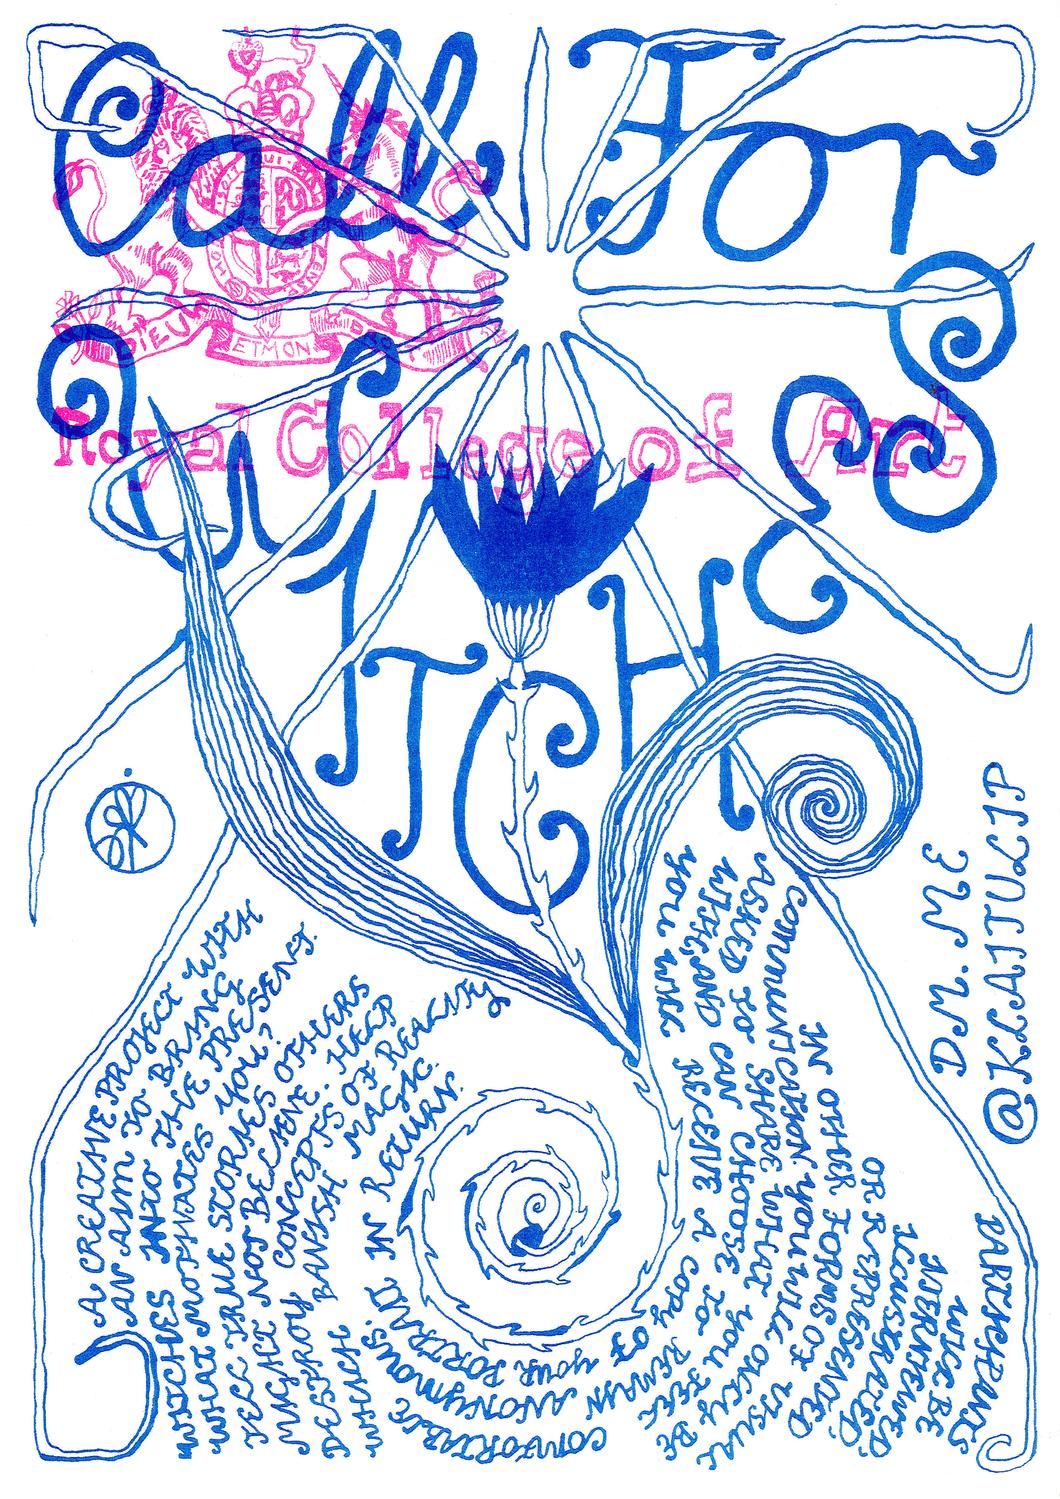 Call For
WITCHES
Royal College of Art
DIEU
ET MON
A CREATIVE PROJECT WITH
AN AIM TO BRING
WITCHES INTO THE PRESENT.
WHAT MOTIVATES YOU?
TELL TRUE STORIES OTHERS
MIGHT NOT BELIEVE. HELP
DESTROY CONCEPTS OF REALITY
WHICH BANISH MAGIC.
PARTICIPANTS
WILL BE
INTERVIEWED,
ILLUSTRATED,
OR REPRESENTED
IN OTHER FORMS OF VISUAL
COMMUNICATION. YOU WILL ONLY BE
ASKED TO SHARE WHAT YOU FEEL
COMFORTABLE
WITH AND CAN CHOOSE TO REMAIN ANONYMOUS.
YOU WILL RECEIVE A COPY OF YOUR PORTRAIT IN RETURN.
DM ME
@KLAITULIP